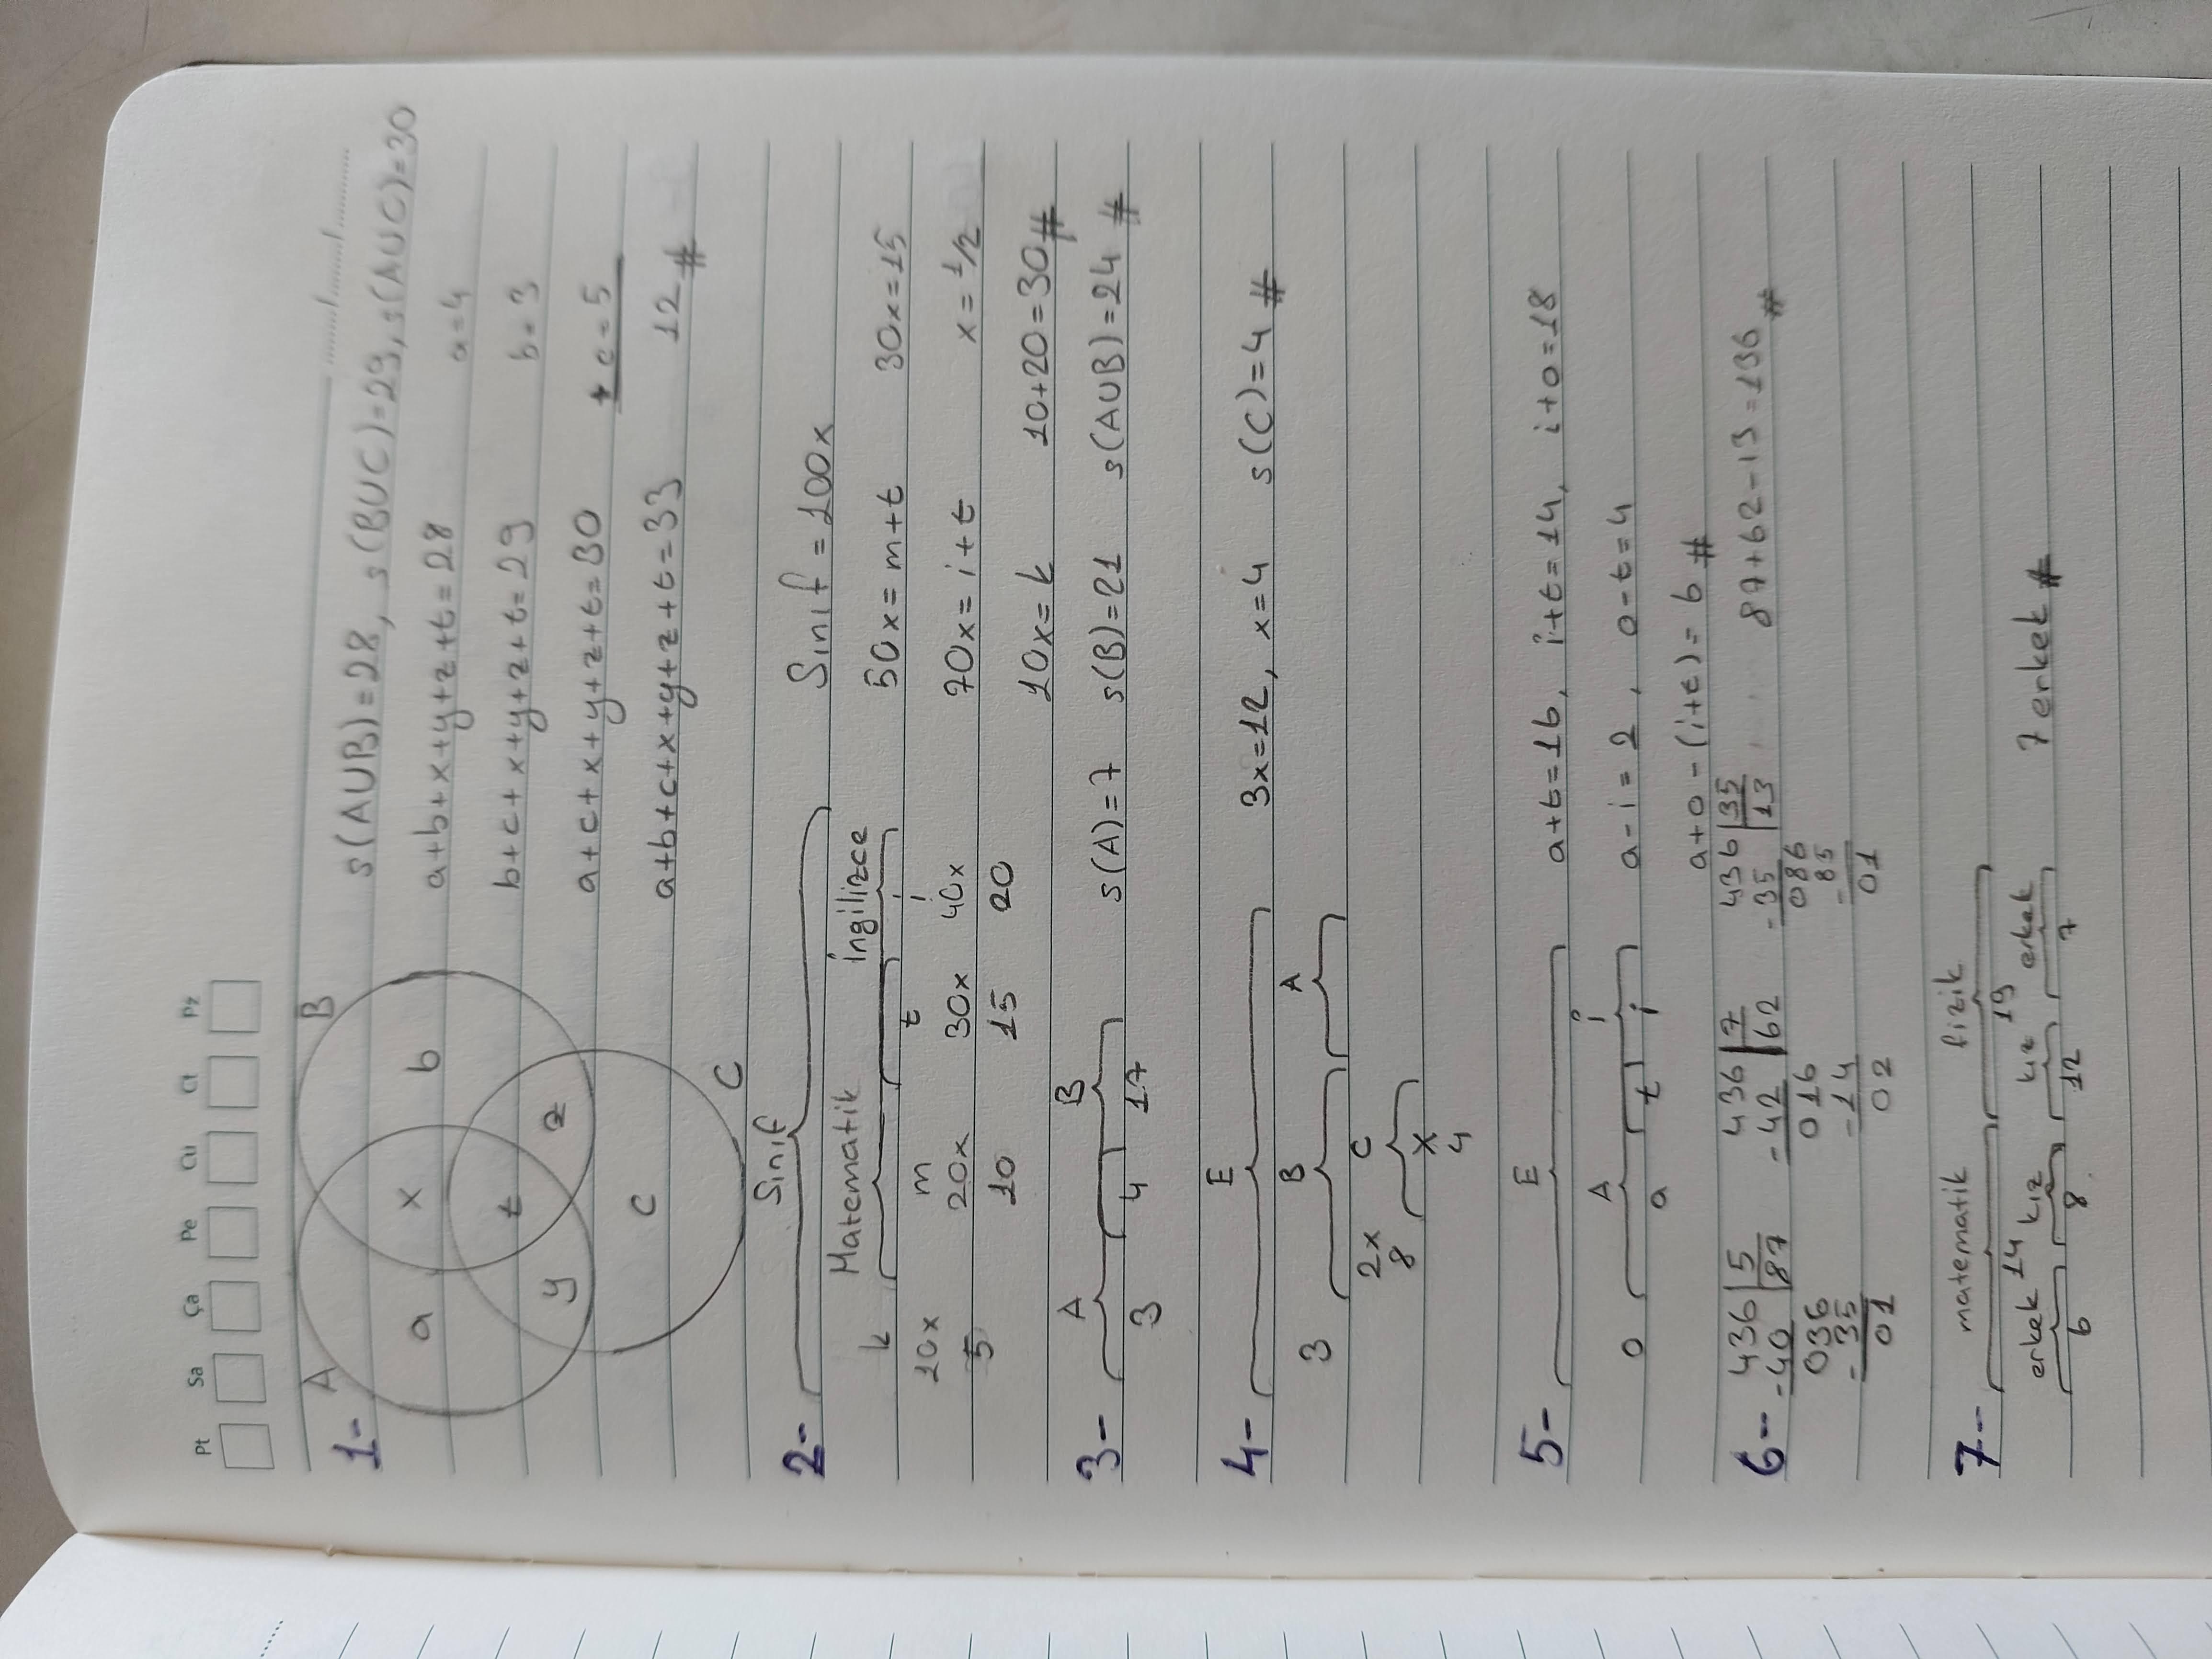 Pt Sa Ça Pe Cu Ct Pz
......../......../............
1-
A B
a x b
t
y z
c
C
s(AUB)=28, s(BUC)=29, s(AUC)=30
a+b+x+y+z+t=28 a=4
b+c+x+y+z+t=29 b=3
a+c+x+y+z+t=30 + c=5
a+b+c+x+y+z+t=33 12 #
2-
Sınıf
Matematik İngilizce
k m t i
10x 20x 30x 40x
5 10 15 20
Sınıf = 100x
50x = m+t 30x=15
70x = i+t x = 1/2
10x = k 10+20=30 #
3-
A B
3 4 17
s(A)=7 s(B)=21 s(AUB)=24 #
4-
E
3 B A
2x C
8 x
4
3x=12, x=4 s(C)=4 #
5-
E
A İ
o a t i
a+t=16, i+t=14, i+o=18
a-i=2, o-t=4
a+o-(i+t)=6 #
6-
436 5 436 7 436 35
-40 87 -42 62 -35 13
036 016 086
-35 -14 -85
01 02 01
87+62-13=136 #
7-
matematik fizik
14 19
erkek kız kız erkek
6 8 12 7
7 erkek #